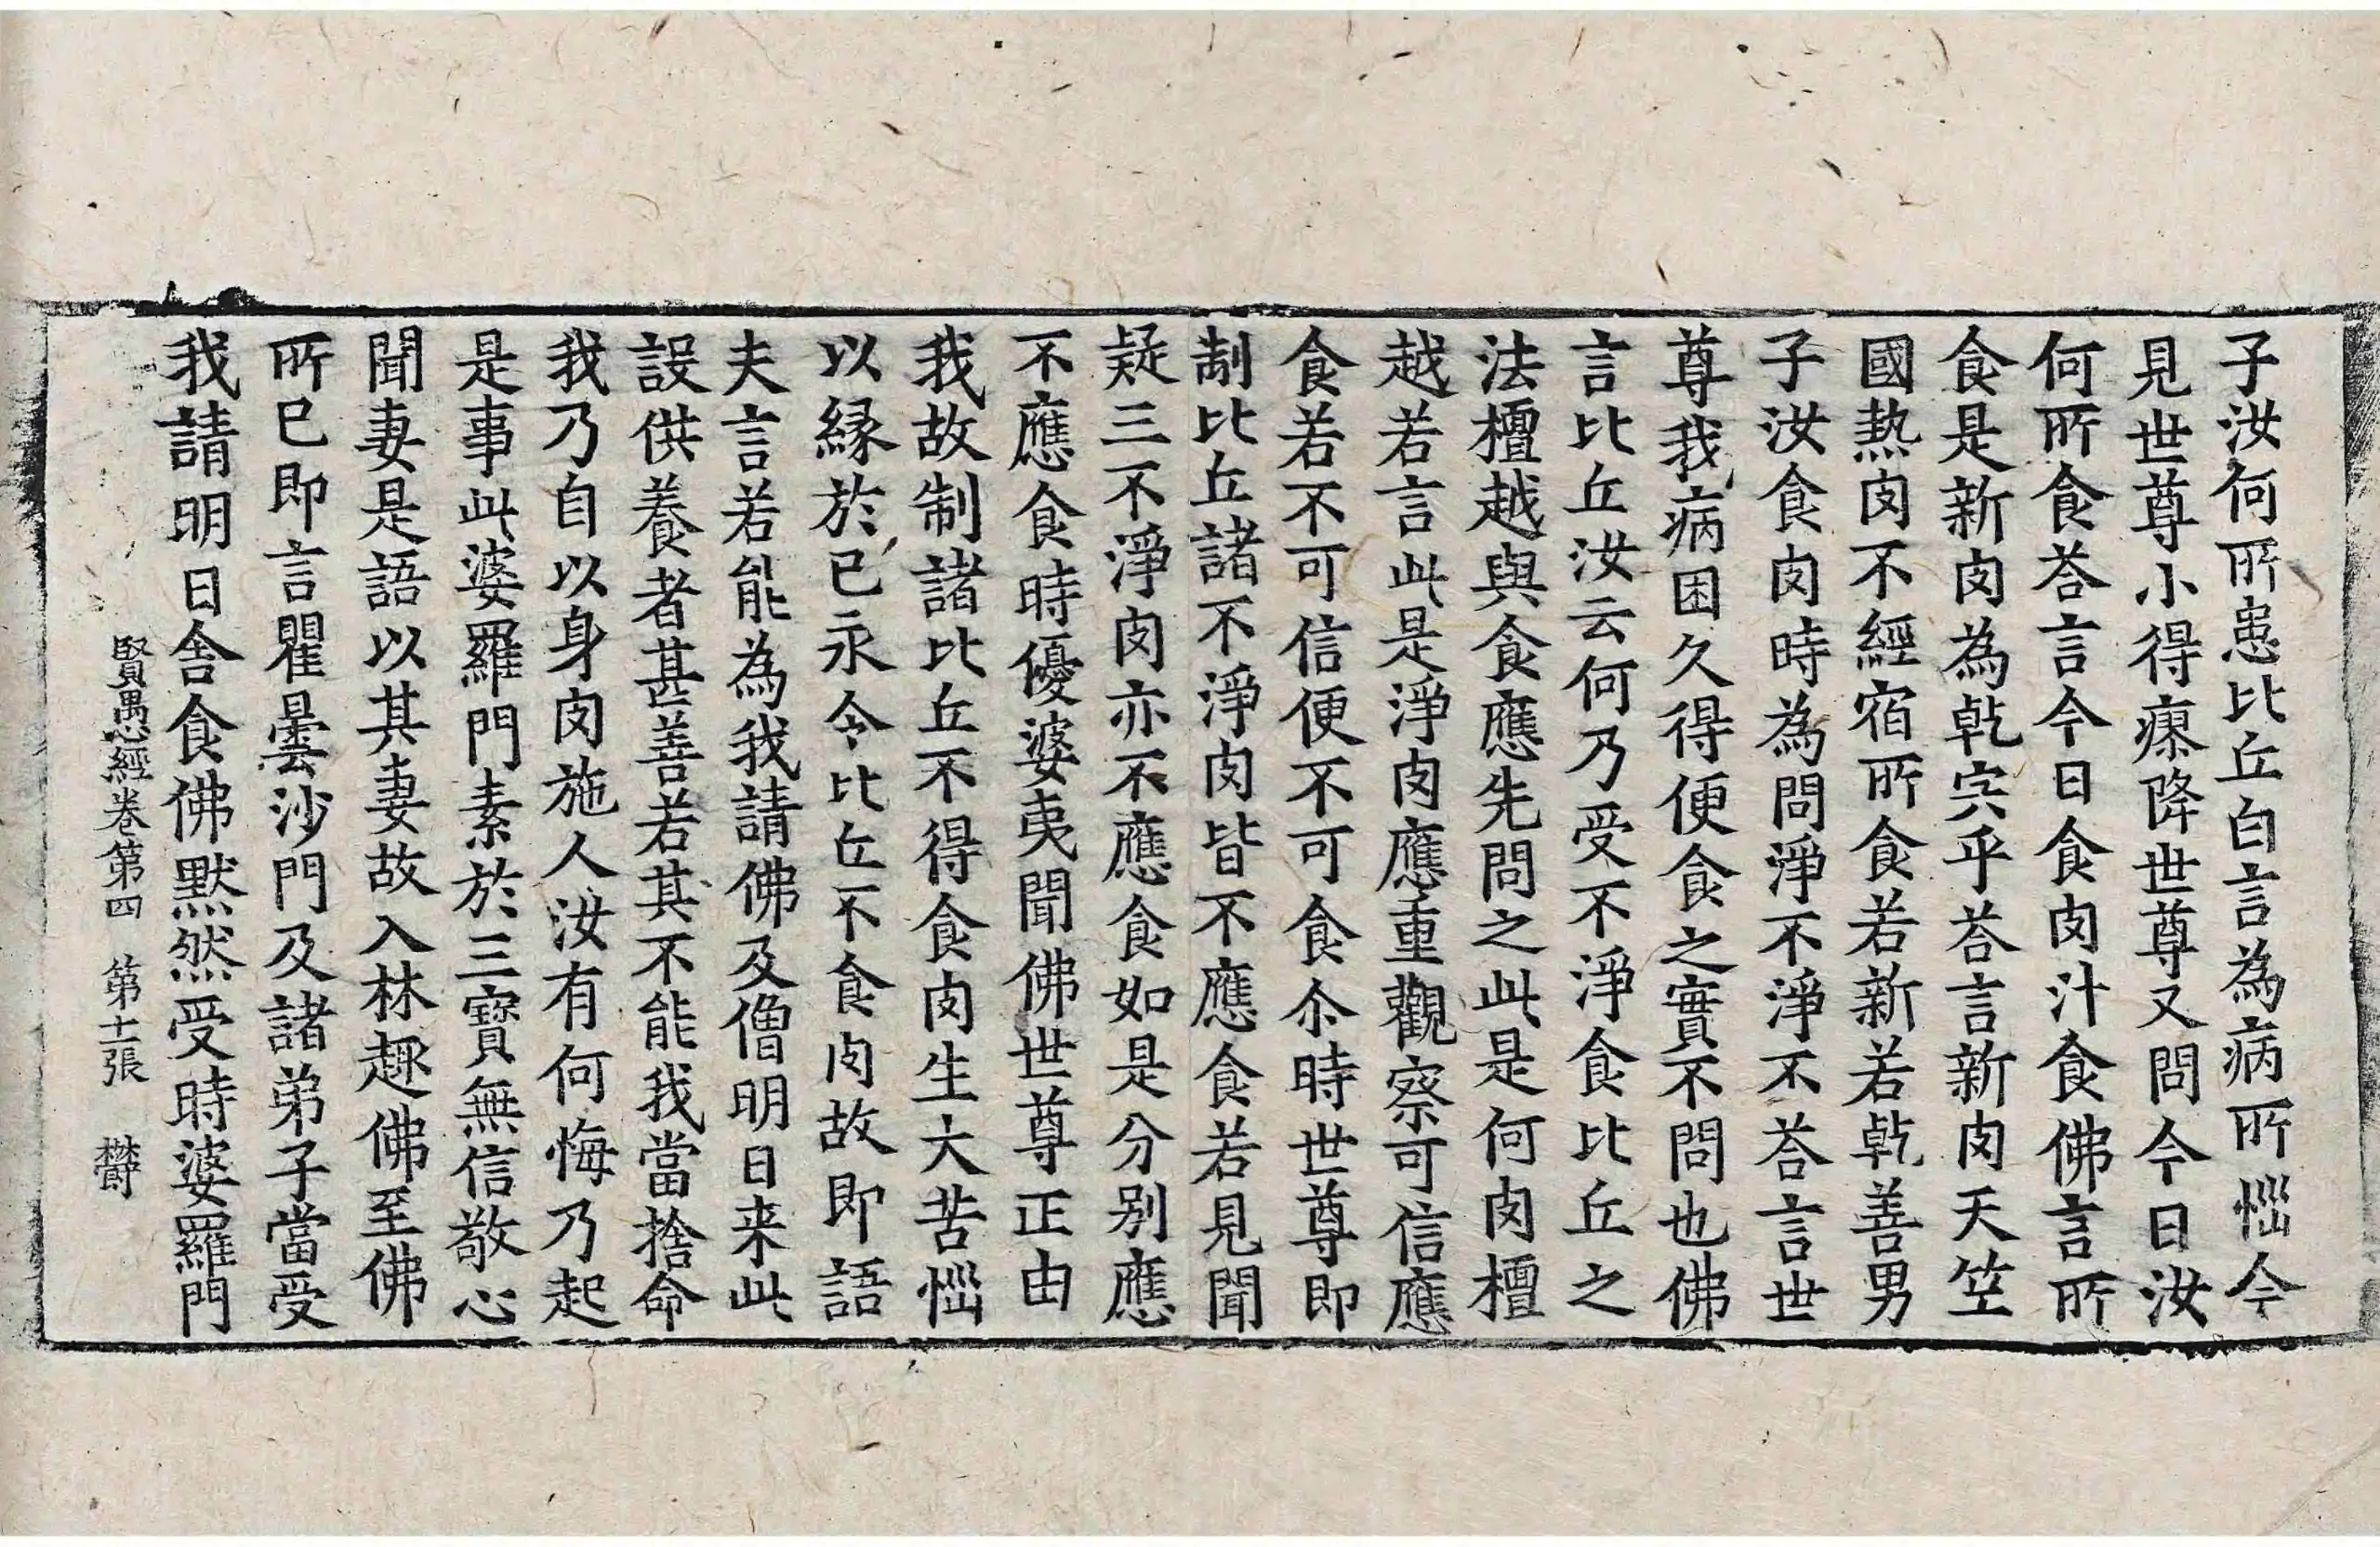 子汝何所患比丘白言為病所惱今
見世尊小得瘳降世尊又問今日汝
何所食荅言今日食肉汁食佛言所
食是新肉為乾宍乎荅言新肉天竺
國熱肉不經宿所食若新若乾善男
子汝食肉時為問淨不淨不荅言世
尊我病困久得便食之實不問也佛
言比丘汝云何乃受不淨食比丘之
法檀越與食應先問之此是何肉檀
越若言此是淨肉應重觀察可信應
食若不可信便不可食尒時世尊即
制比丘諸不淨肉皆不應食若見聞
疑三不淨肉亦不應食如是分別應
不應食時優婆夷聞佛世尊正由
我故制諸比丘不得食肉生大苦惱
以緣於己永令比丘不食肉故即語
夫言若能為我請佛及僧明日来此
設供養者甚善若其不能我當捨命
我乃自以身肉施人汝有何悔乃起
是事此婆羅門素於三寶無信敬心
聞妻是語以其妻故入林趣佛至佛
所已即言瞿曇沙門及諸弟子當受
我請明日舎食佛默然受時婆羅門
賢愚經卷第四　第十一張　欝